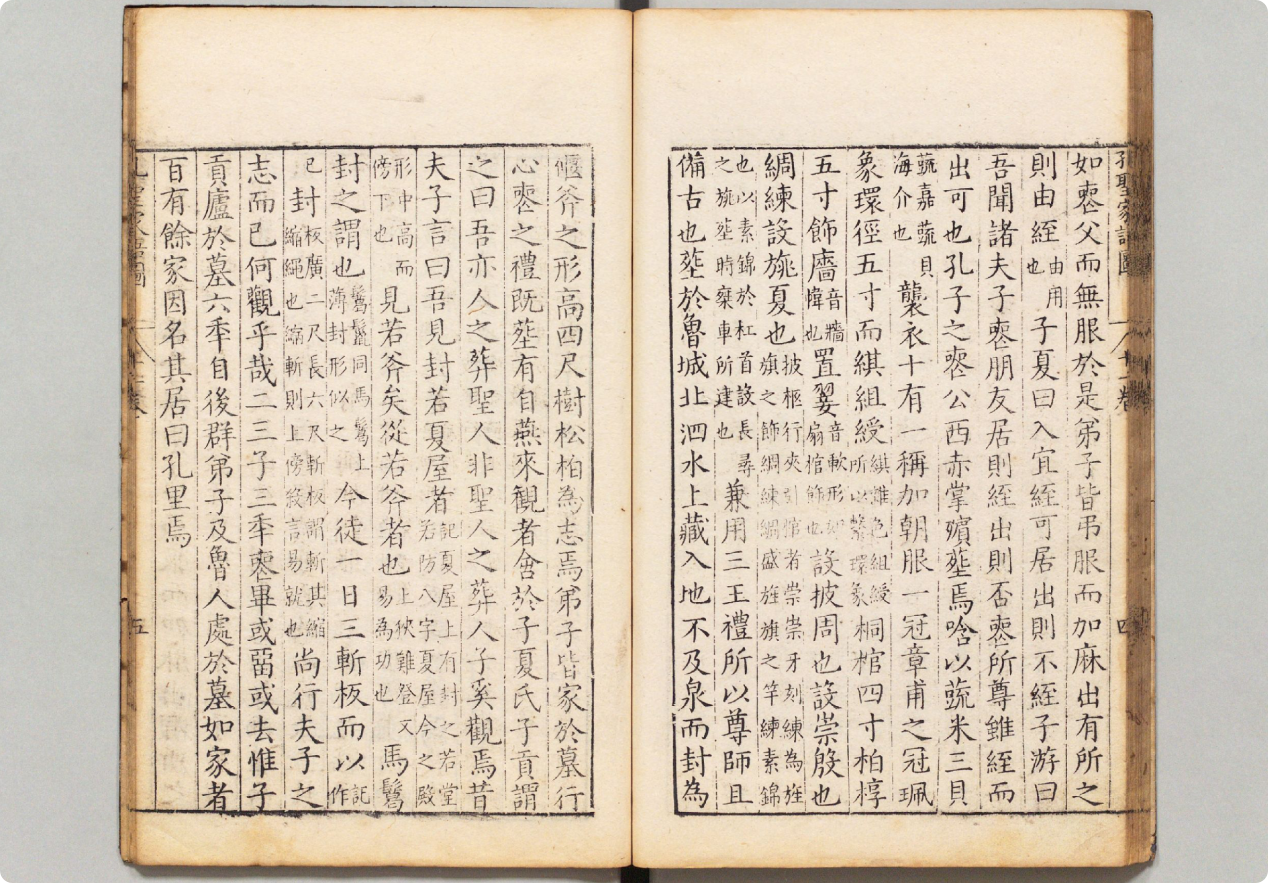 孔聖家語圖 卷 四
如䘮父而無服於是弟子皆弔服而加麻出有所之
則由絰由用也子夏曰入宜絰可居出則不絰子游曰
吾聞諸夫子䘮朋友居則絰出則否䘮所尊雖絰而
出可也孔子之䘮公西赤掌殯塟焉唅以蔬米三貝
蔬嘉蔬貝海介也襲衣十有一稱加朝服一冠章甫之冠珮
象環徑五寸而綨組綬綨雜色組綬所以繫環象桐棺四寸柏椁
五寸飾廧音牆幃也置翣音軟形如扇棺飾也設披周也設崇殷也
綢練設旐夏也披柩行夾引棺者崇崇牙刻練為旌旗之飾綢練綢盛旌旗之竿練素錦
也以素錦於杠首設長尋之旐塟時椉車所建也兼用三王禮所以尊師且
備古也塟於魯城北泗水上藏入地不及泉而封為
偃斧之形高四尺樹松柏為志焉弟子皆家於墓行
心䘮之禮既塟有自燕來觀者舍於子夏氏子貢謂
之曰吾亦人之葬聖人非聖人之葬人子奚觀焉昔
夫子言曰吾見封若夏屋者記夏屋上有封之若堂若防八字夏屋今之殿
形中高而傍下也見若斧矣從若斧者也上狹難登又易為功也馬鬣
封之謂也鬣鬣同馬鬣上薄封形似之今徒一日三斬板而以記作
已封板廣二尺長六尺斬板謂斬其縮縮繩也縮斬則上傍殺言易就也尚行夫子之
志而已何觀乎哉二三子三秊䘮畢或畱或去惟子
貢廬於墓六秊自後群弟子及魯人處於墓如家者
百有餘家因名其居曰孔里焉
五